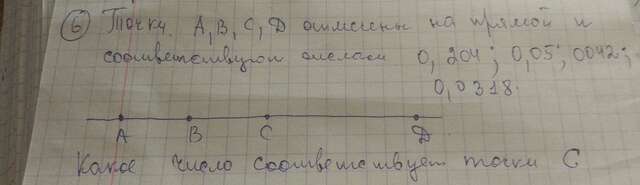 6 Точки A, B, C, D отмечены на прямой и
соответствуют числам 0,204; 0,05; 0042;
0,0318.
A B C D
Какое число соответствует точки C